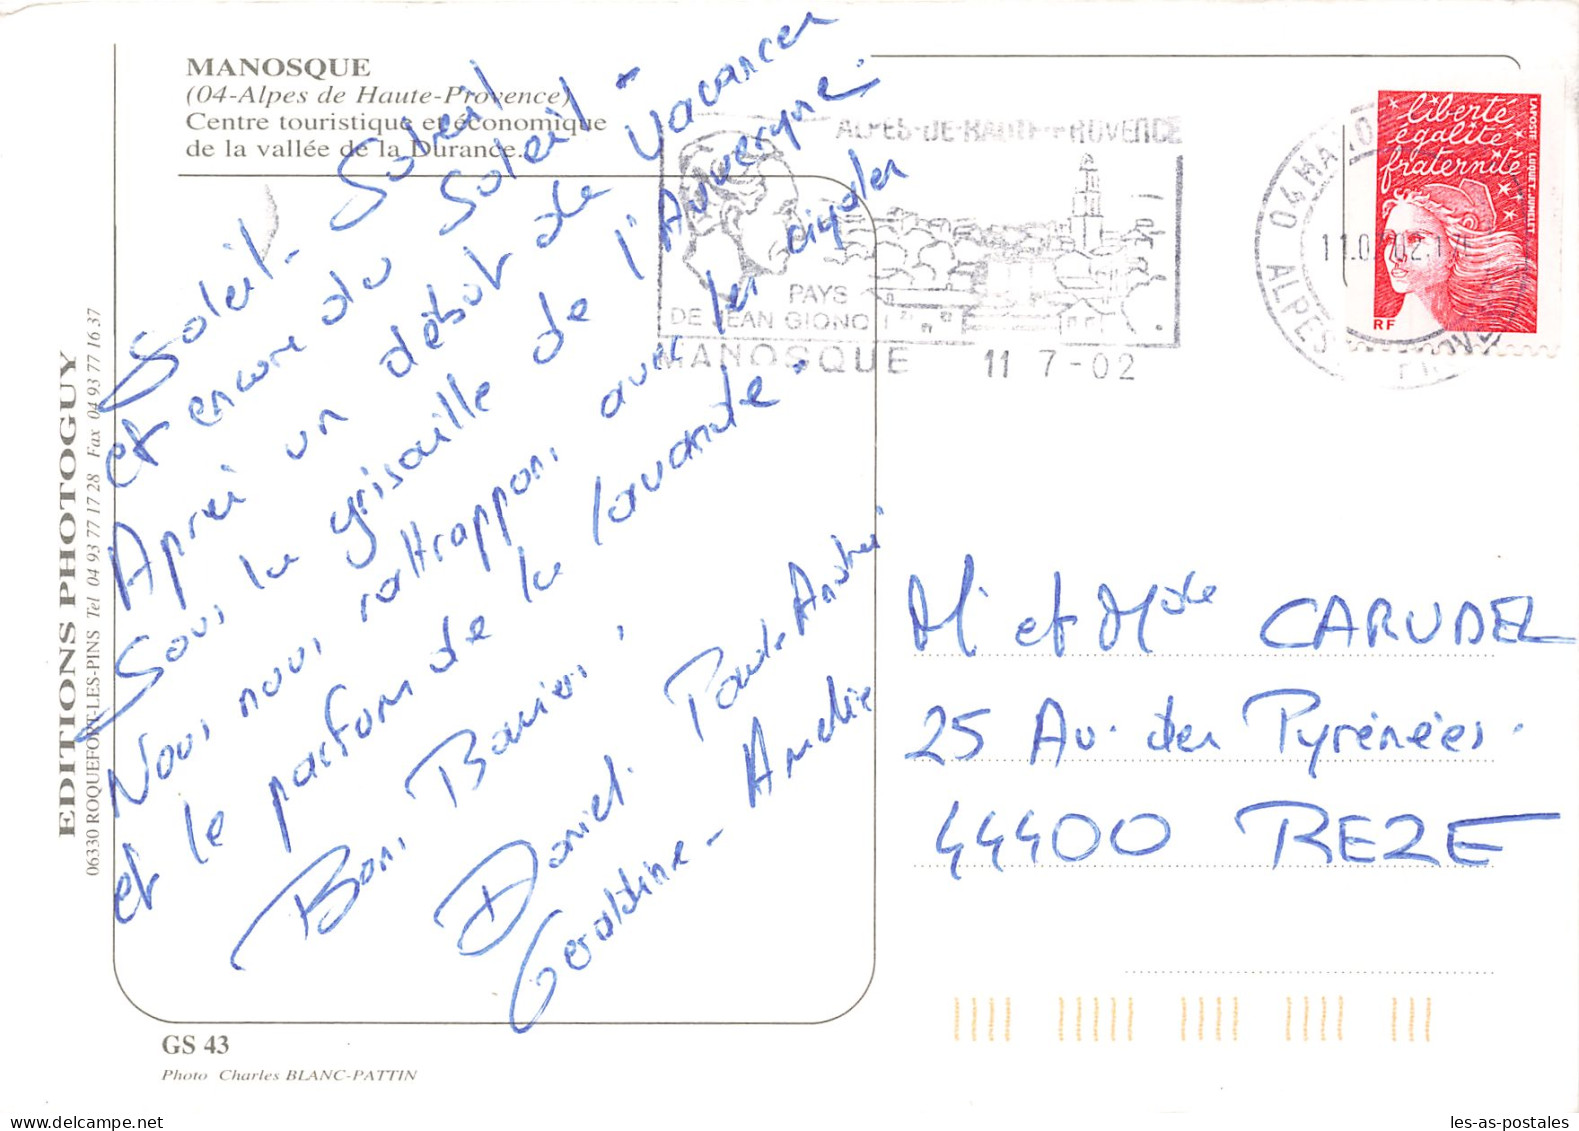 MANOSQUE
(04-Alpes de Haute-Provence)
Centre touristique et économique
de la vallée de la Durance.
Soleil - Soleil
et encore du Soleil -
Après un début de vacances
Sous la grisaille de l'Auvergne
Nous nous rattrappons avec les cigales
et le parfum de la lavande.
Bons Baisers,
Daniel Paule-Andrée
Géraldine - Amélie
EDITIONS PHOTOGUY
06330 ROQUEFORT-LES-PINS Tel 04 93 77 17 28 Fax 04 93 77 16 37
GS 43
Photo Charles BLANC-PATTIN
ALPES-DE-HAUTE-PROVENCE
PAYS
DE JEAN GIONO
MANOSQUE 11 7-02
04 MANO
ALPES
liberté
égalité
fraternité
RF
LA POSTE LUQUET-JUMELET
Mr et Mde CARUDEL
25 Av. des Pyrénées.
44400 REZE
les-as-postales